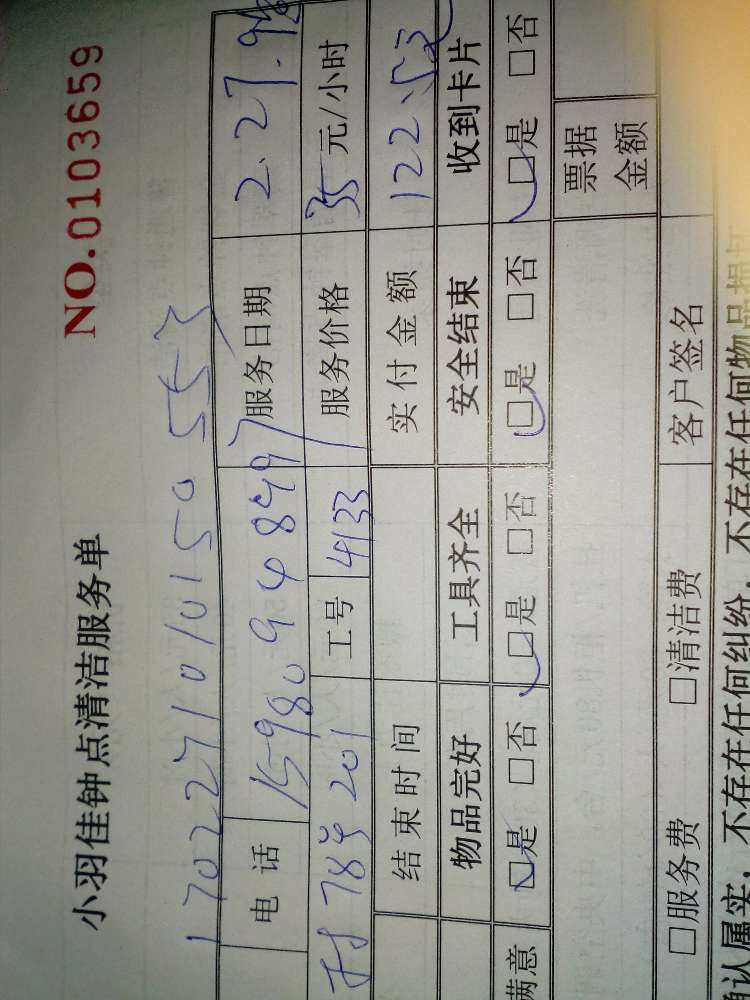 小羽佳钟点清洁服务单 NO.0103659
1702271010150553
电话 15980948497 服务日期 2.27.
村78号201 工号 4133 服务价格 35元/小时
结束时间 实付金额 122.5
物品完好 工具齐全 安全结束 收到卡片
满意 □是 □否 □是 □否 □是 □否 □是 □否
票据金额
□服务费 □清洁费 客户签名
确认属实，不存在任何纠纷，不存在任何物品损坏